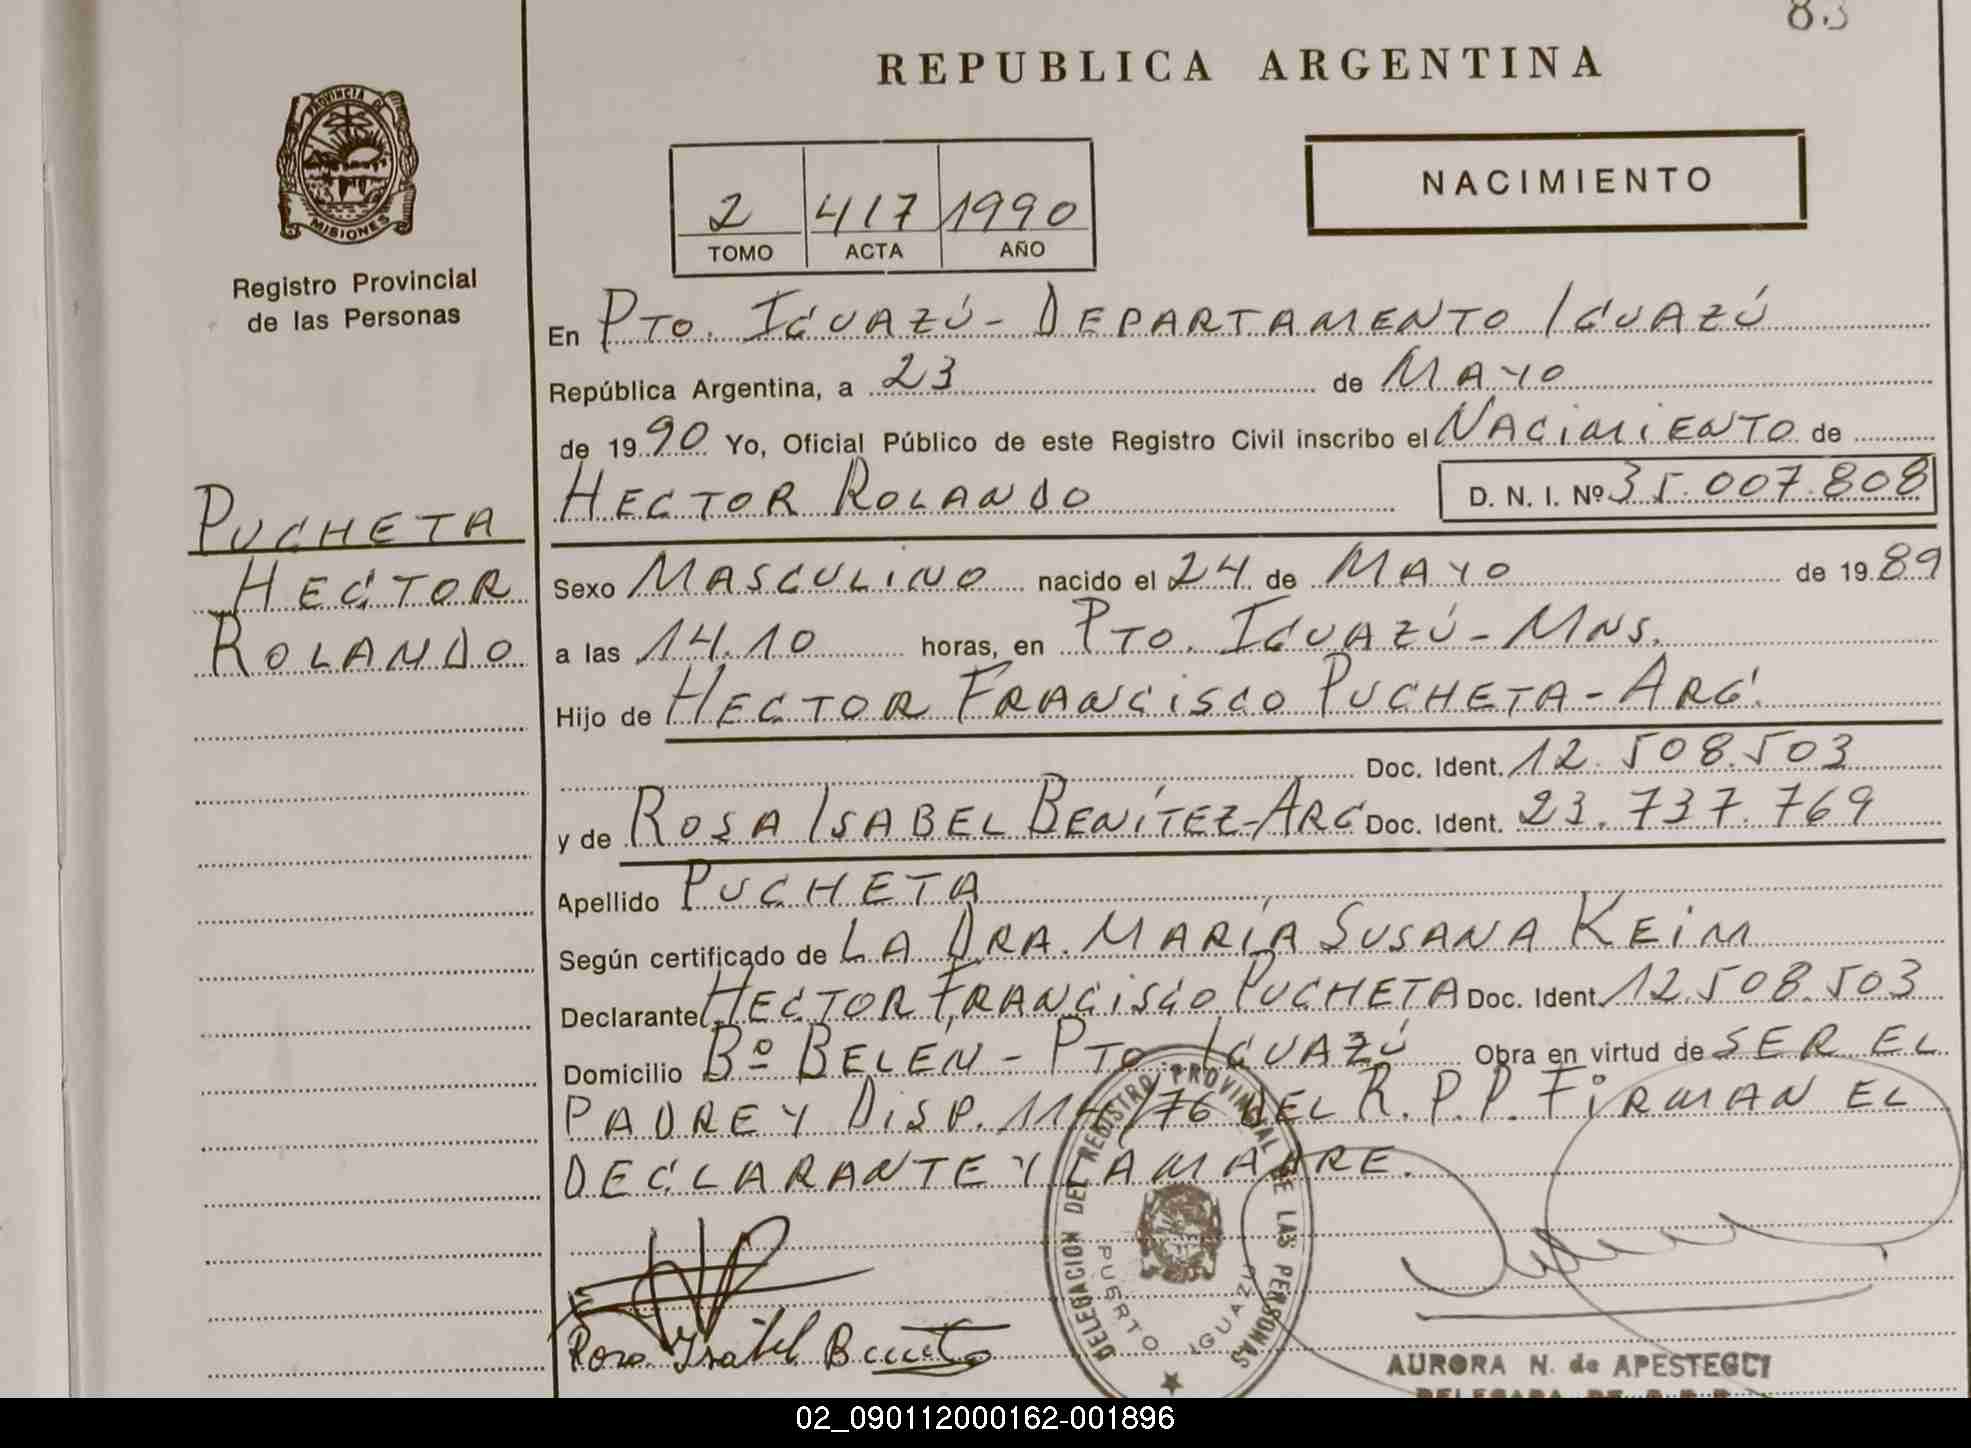 83
REPUBLICA ARGENTINA
PROVINCIA DE
MISIONES
Registro Provincial
de las Personas
2 417 1990
TOMO ACTA AÑO
NACIMIENTO
En PTO. IGUAZÚ - DEPARTAMENTO IGUAZÚ
República Argentina, a 23 de MAYO
de 1990 Yo, Oficial Público de este Registro Civil inscribo el NACIMIENTO de
HECTOR ROLANDO D. N. I. Nº 35.007.808
PUCHETA
HECTOR
ROLANDO
Sexo MASCULINO nacido el 24 de MAYO de 1989
a las 14.10 horas, en PTO. IGUAZÚ - MNS.
Hijo de HECTOR FRANCISCO PUCHETA - ARG.
Doc. Ident. 12.508.503
y de ROSA ISABEL BENÍTEZ - ARG Doc. Ident. 23.737.769
Apellido PUCHETA
Según certificado de LA DRA. MARÍA SUSANA KEIM
Declarante HECTOR FRANCISCO PUCHETA Doc. Ident. 12.508.503
Domicilio Bº BELEN - PTO IGUAZÚ Obra en virtud de SER EL
PADRE Y DISP. 114/76 DEL R.P.P. FIRMAN EL
DECLARANTE Y LA MADRE.
DELEGACION DEL REGISTRO PROVINCIAL DE LAS PERSONAS
PUERTO IGUAZU
Rosa Isabel Benitez
AURORA N. de APESTEGUI
DELEGADA DE R.P.P.
02_090112000162-001896